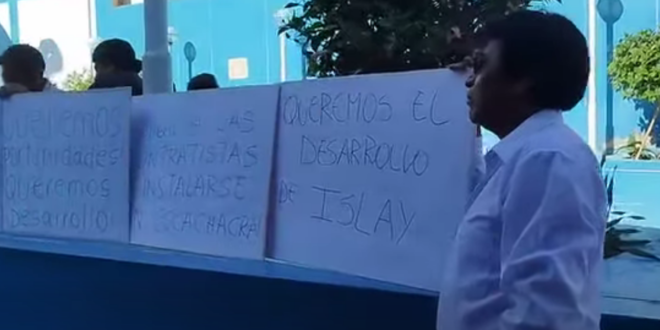 Queremos
Oportunidades
Queremos
Desarrollo!
LAS
CONTRATISTAS
INSTALARSE
COCACHACRA!
QUEREMOS EL
DESARROLLO
DE ISLAY